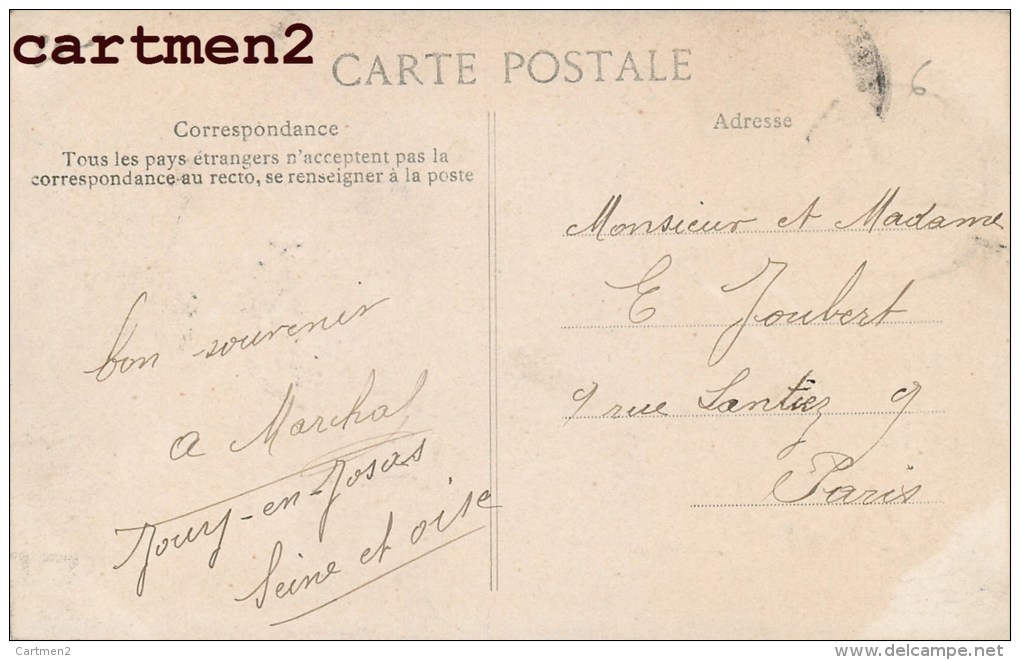 cartmen2
CARTE POSTALE
6
Correspondance
Tous les pays étrangers n'acceptent pas la
correspondance au recto, se renseigner à la poste
bon souvenir
a Marchal
Jouy-en-Josas
Seine et oise
Adresse
Monsieur et Madame
E Joubert
9 rue Santiez 9
Paris
Cartmen2
www.delcampe.net